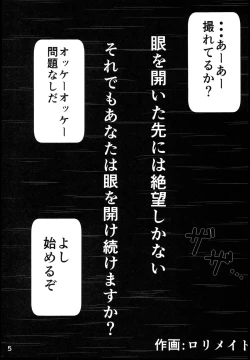 …あーあー
撮れてるか?
眼を開いた先には絶望しかない
それでもあなたは眼を開け続けますか?
オッケーオッケー
問題なしだ
よし
始めるぞ
ザザ…
作画:ロリメイト
5